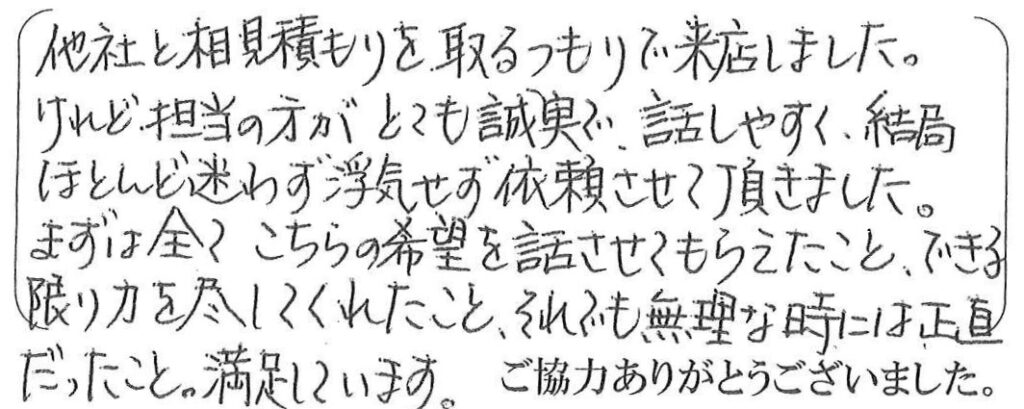 他社と相見積もりを取るつもりで来店しました。
けれど担当の方がとても誠実で、話しやすく、結局
ほとんど迷わず浮気せず依頼させて頂きました。
まずは全てこちらの希望を話させてもらえたこと、できる
限り力を尽してくれたこと、それでも無理な時には正直
だったこと。満足しています。 ご協力ありがとうございました。